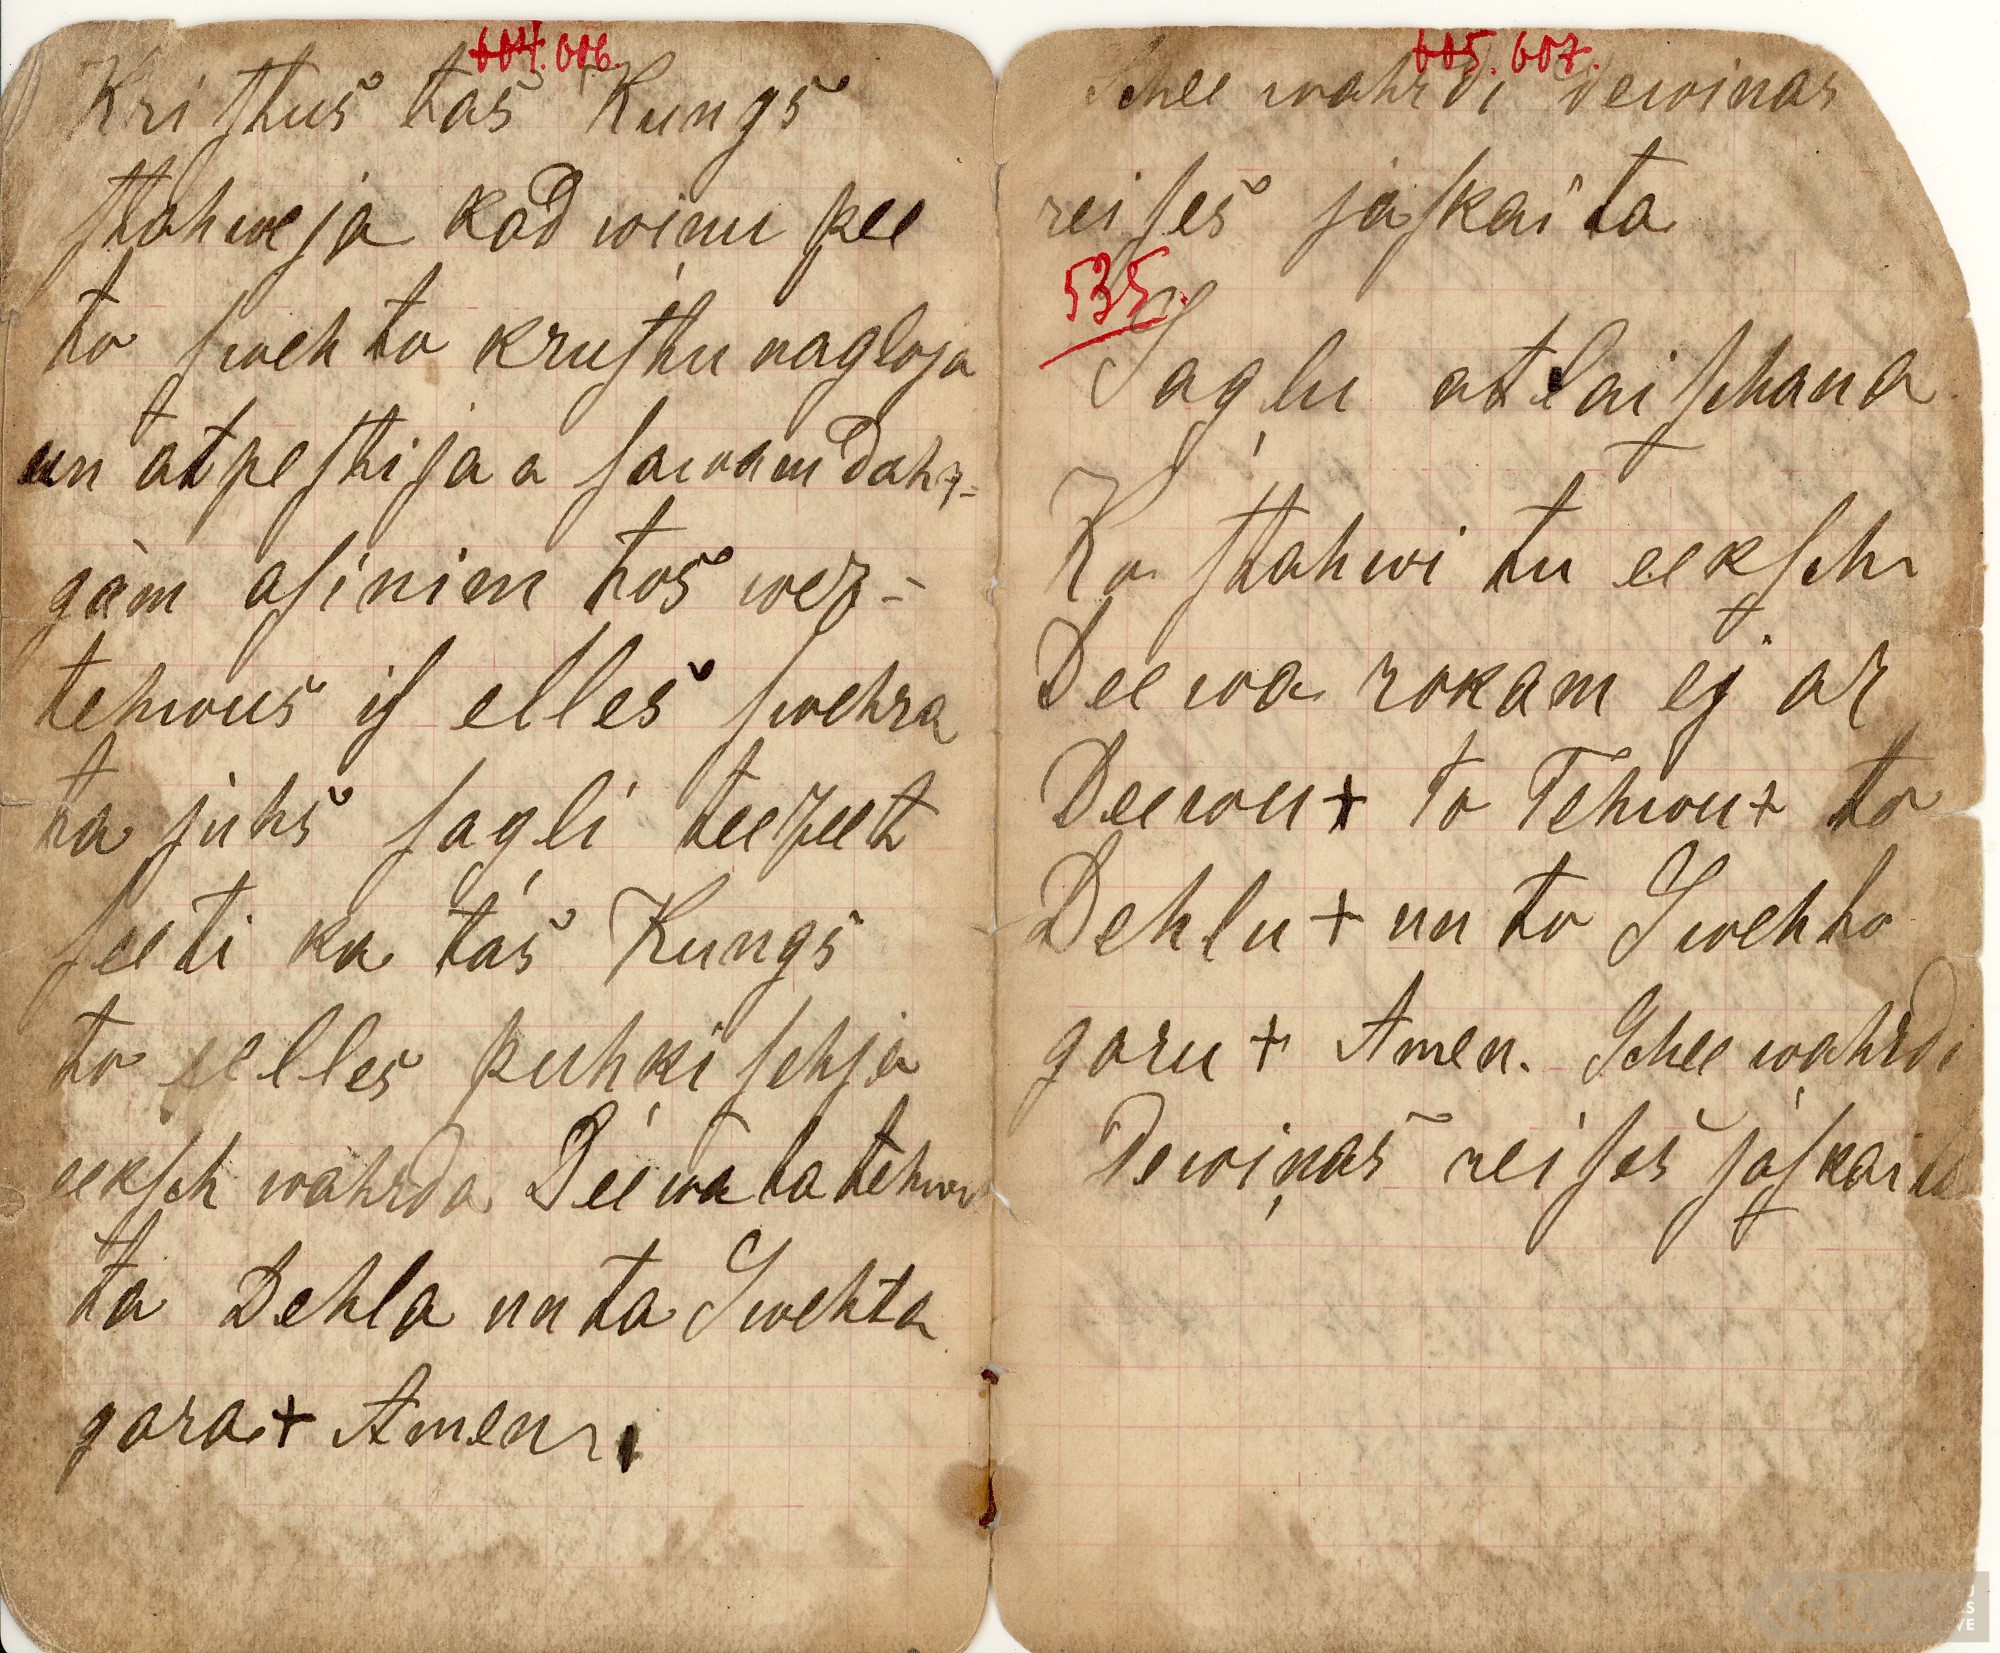 604. 606.
Kristus tas Kungs
stahweja kad winu pee
to swehto krustu nagloja
un atpestija a sawam dahr-
gam asinim tos wez-
tehwus is elles swehra
ta juhs sagli teezeet
seeti ka tas Kungs
to elles puhki sehja
eeksch wahrda Deewa ta tehwa
ta Dehla un ta Swehta
gara + Amen.
605. 607.
Schee wahrdi dewinas
reises jaskaita
535.
Sagļu atlaischana
Ko stahwi tu eeksch
Deewa rokam ej ar
Deewu + to Tehwu + to
Dehlu + un to Swehto
garu + Amen. Schee wahrdi
Dewiņas reises jaskaita